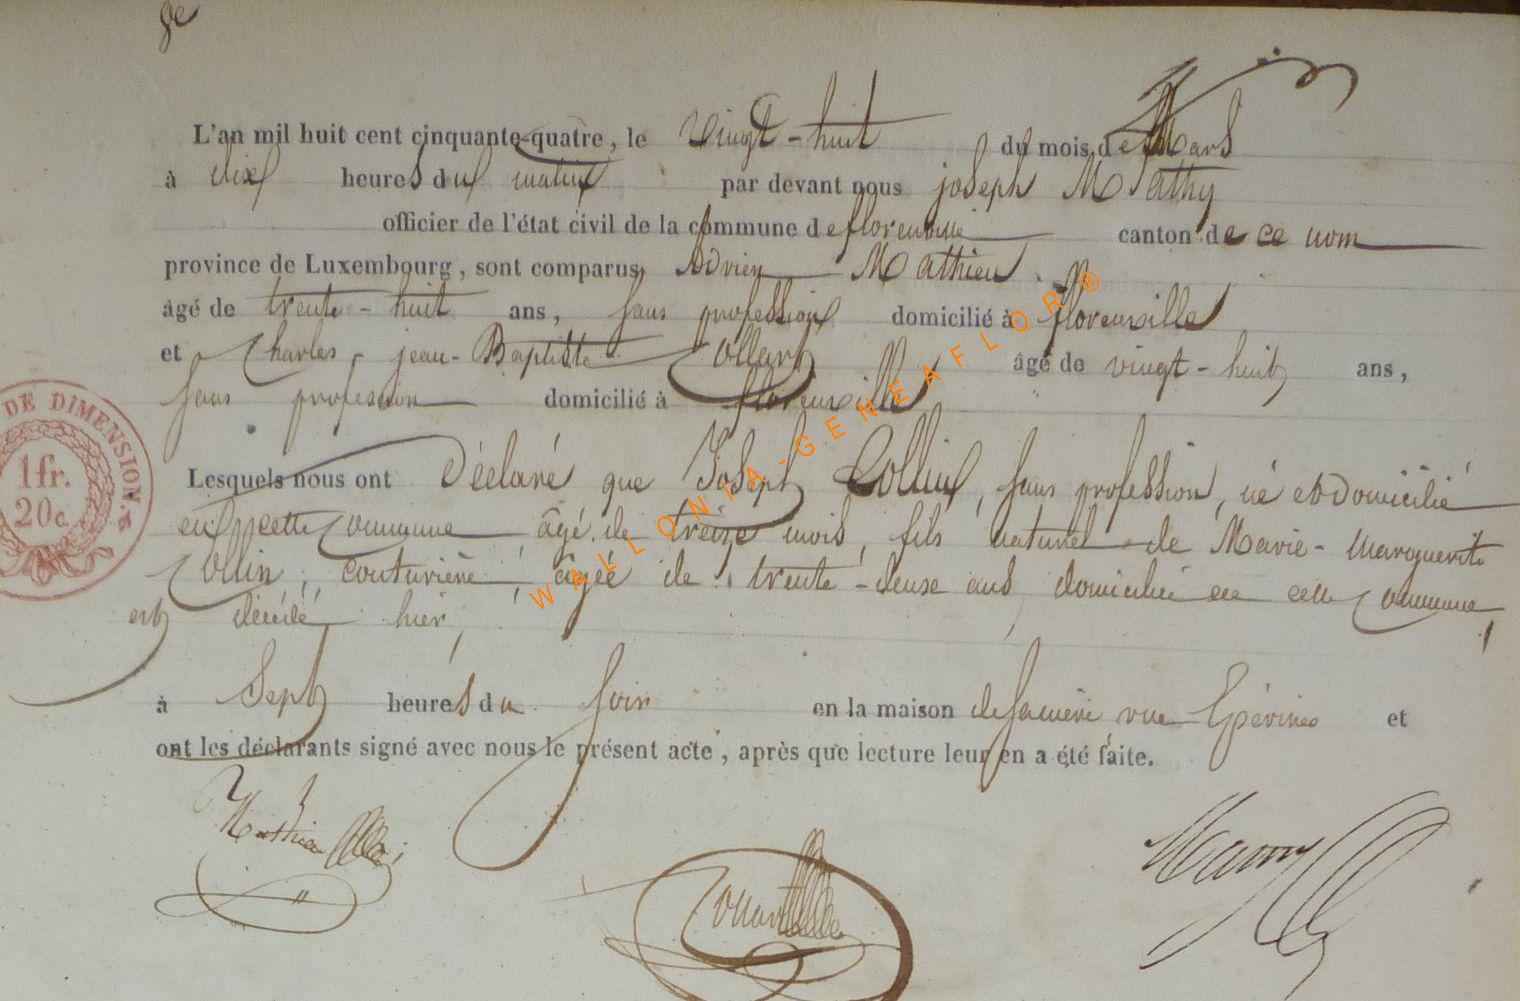 8e
L'an mil huit cent cinquante-quatre, le vingt-huit du mois de Mars
à dix heures du matin par devant nous joseph Mathy
officier de l'état civil de la commune de florenville canton de ce nom
province de Luxembourg, sont comparus, Adrien Mathieu
âgé de trente-huit ans, sans profession domicilié à florenville
et Charles, jean-Baptiste Collart âgé de vingt-huit ans,
sans profession domicilié à florenville
DE DIMENSION.
1 fr.
20 c.
Lesquels nous ont Déclaré que Joseph Collin, sans profession, né et domicilié
en cette Commune âgé de treize mois, fils naturel de Marie-Marguerite
Collin, couturière, âgée de trente-deux ans, domiciliée en cette Commune,
est décédé hier,
à Sept heures du soir en la maison de sa mère rue Epérires et
ont les déclarants signé avec nous le présent acte, après que lecture leur en a été faite.
Mathieu
Collart
WALLONIA-GENEAFLOR®